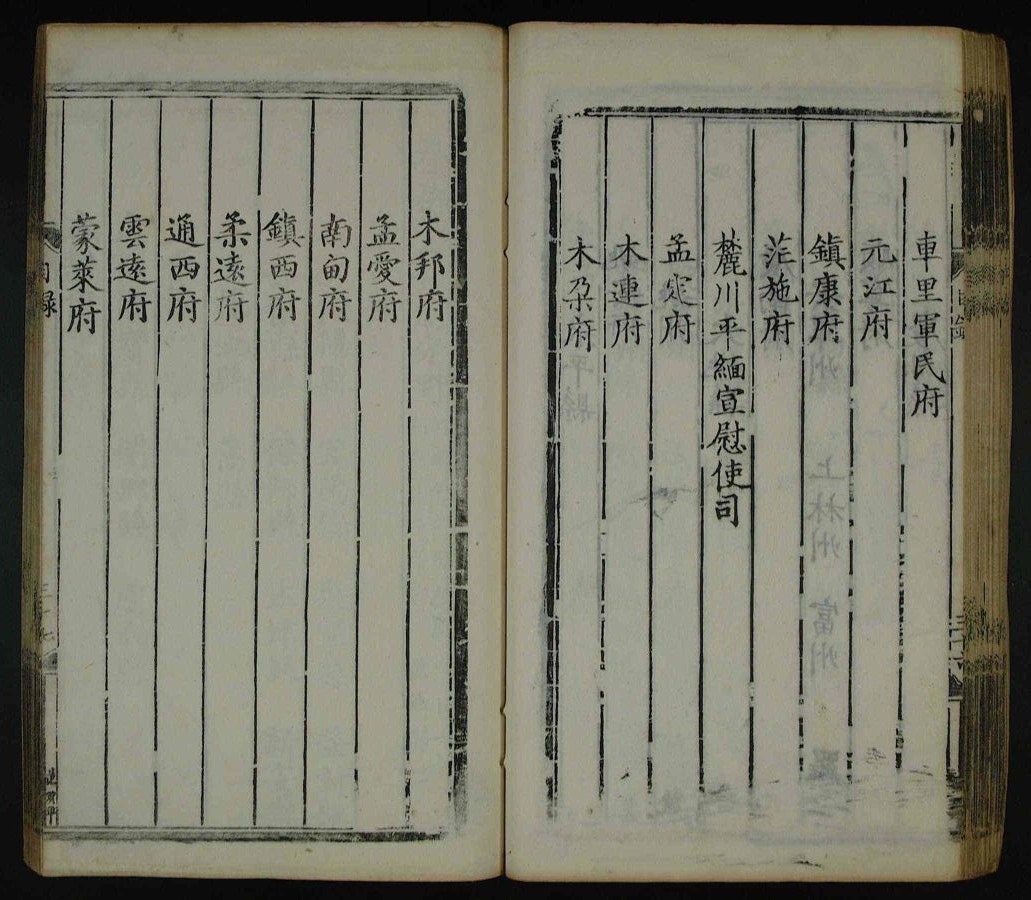 車里軍民府
元江府
鎮康府
茫施府
麓川平緬宣慰使司
孟定府
木連府
木朶府
木邦府
孟愛府
南甸府
鎮西府
柔遠府
通西府
雲遠府
蒙萊府
目録